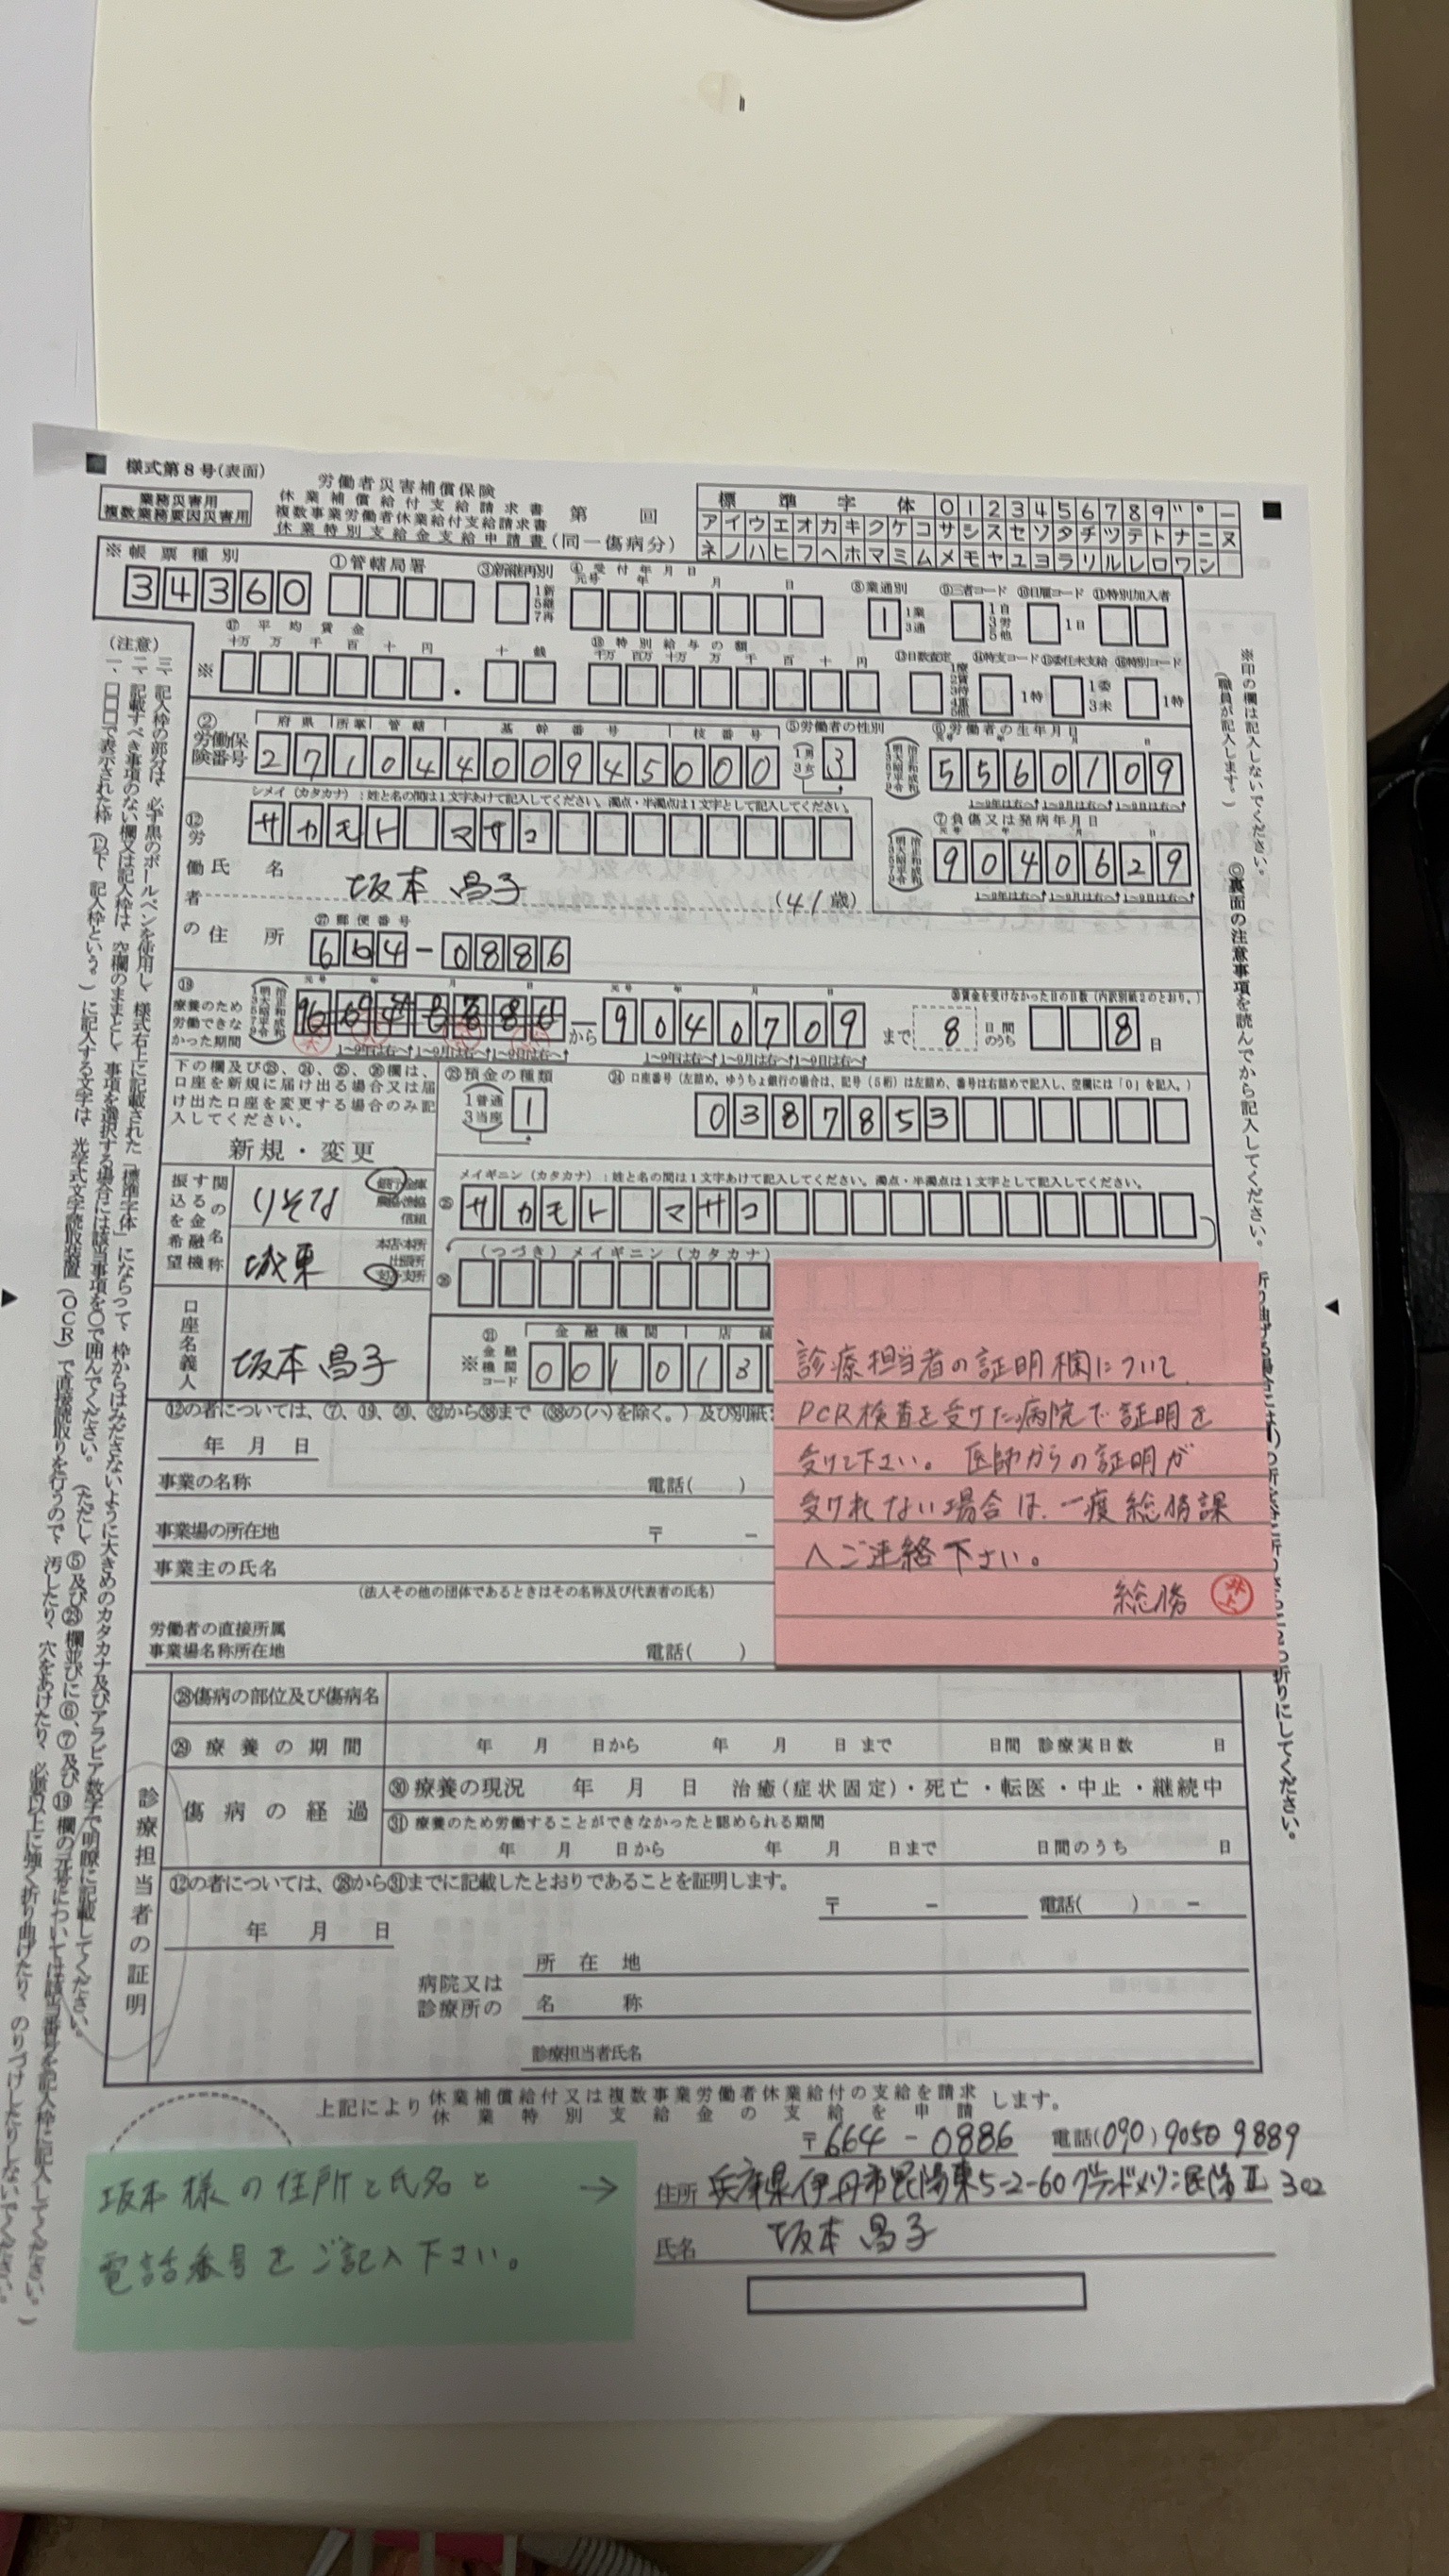 様式第8号(表面)
業務災害用
複数業務要因災害用
労働者災害補償保険
休業補償給付支給請求書
複数事業労働者休業給付支給請求書
休業特別支給金支給申請書(同一傷病分)
第 回
標準字体 0 1 2 3 4 5 6 7 8 9 ゛ ゜ ー
アイウエオカキクケコサシスセソタチツテトナニヌ
ネノハヒフヘホマミムメモヤユヨラリルレロワン
※帳票種別
34360
①管轄局署
③新継再別
1新
5継
7再
④受付年月日
元号 年 月 日
⑧業通別
1
1業
3通
⑨三者コード
1自
3労
5他
⑩日雇コード
1日
⑪特別加入者
⑰平均賃金
十万 万 千 百 十 円 十 銭
⑱特別給与の額
千万 百万 十万 万 千 百 十 円
⑬日数査定
⑭特支コード
1特
⑮委任未支給
1委
3未
⑯特別コード
1特
※印の欄は記入しないでください。
(職員が記入します。)
◎裏面の注意事項を読んでから記入してください。
(注意)
一、□□□で表示された枠(以下、記入枠という。)に記入する文字は、光学式文字読取装置(OCR)で直接読取りを行うので、汚したり、穴をあけたり、必要以上に強く折り曲げたり、のりづけしたりしないでください。
二、記載すべき事項のない欄又は記入枠は、空欄のままとし、事項を選択する場合には該当事項を○で囲んでください。(ただし、⑤及び㉓欄並びに⑥、⑦及び⑲欄の元号については該当番号を記入枠に記入してください。)
三、記入枠の部分は、必ず黒のボールペンを使用し、様式右上に記載された「標準字体」にならって、枠からはみださないように大きめのカタカナ及びアラビア数字で明瞭に記載してください。
②労働保険番号
府県 所掌 管轄 基幹番号 枝番号
27104400945000
⑤労働者の性別
1男
3女
3
⑥労働者の生年月日
5560109
1~9年は右へ 1~9月は右へ 1~9日は右へ
シメイ(カタカナ):姓と名の間は1文字あけて記入してください。濁点・半濁点は1文字として記入してください。
サカモト マサコ
⑦負傷又は発病年月日
9040629
1~9年は右へ 1~9月は右へ 1~9日は右へ
⑫労働者の
氏名
坂本 昌子
(41歳)
住所
㉗郵便番号
664-0886
⑲療養のため労働できなかった期間
から
9040709
まで
8
日間のうち
8
日
1~9年は右へ 1~9月は右へ 1~9日は右へ
⑳賃金を受けなかった日の日数(内訳別紙2のとおり。)
下の欄及び㉓、㉔、㉕、㉖欄は、
口座を新規に届け出る場合又は届
け出た口座を変更する場合のみ記
入してください。
㉓預金の種類
1普通
3当座
1
㉔口座番号(左詰め。ゆうちょ銀行の場合は、記号(5桁)は左詰め、番号は右詰めで記入し、空欄には「0」を記入。)
0387853
新規・変更
振込を希望する金融機関の名称
りそな
銀行・金庫
農協・漁協
信組
城東
本店・本所
出張所
支店・支所
メイギニン(カタカナ):姓と名の間は1文字あけて記入してください。濁点・半濁点は1文字として記入してください。
㉕
サカモト マサコ
(つづき)メイギニン(カタカナ)
㉖
口座名義人
坂本 昌子
㉑
※金融機関コード
金融機関 店舗
001013
⑫の者については、⑦、⑲、⑳、㉜から㊳まで(㊳の(ハ)を除く。)及び別紙
年 月 日
事業の名称
電話( )
事業場の所在地
〒 -
事業主の氏名
(法人その他の団体であるときはその名称及び代表者の氏名)
労働者の直接所属
事業場名称所在地
電話( )
診療担当者の証明欄について
PCR検査を受けた病院で証明を
受けて下さい。医師からの証明が
受けれない場合は、一度総務課
へご連絡下さい。
総務 井上
診療担当者の証明
㉘傷病の部位及び傷病名
㉙療養の期間
年 月 日から 年 月 日まで 日間 診療実日数 日
傷病の経過
㉚療養の現況 年 月 日 治癒(症状固定)・死亡・転医・中止・継続中
㉛療養のため労働することができなかったと認められる期間
年 月 日から 年 月 日まで 日間のうち 日
⑫の者については、㉘から㉛までに記載したとおりであることを証明します。
年 月 日
〒 - 電話( ) -
病院又は診療所の
所在地
名称
診療担当者氏名
上記により
休業補償給付又は複数事業労働者休業給付の支給を請求
休業特別支給金の支給を申請
します。
〒664-0886 電話(090)9050 9889
住所 兵庫県伊丹市昆陽東5-2-60グランドメゾン昆陽Ⅱ 302
氏名 坂本 昌子
坂本様の住所と氏名と →
電話番号をご記入下さい。